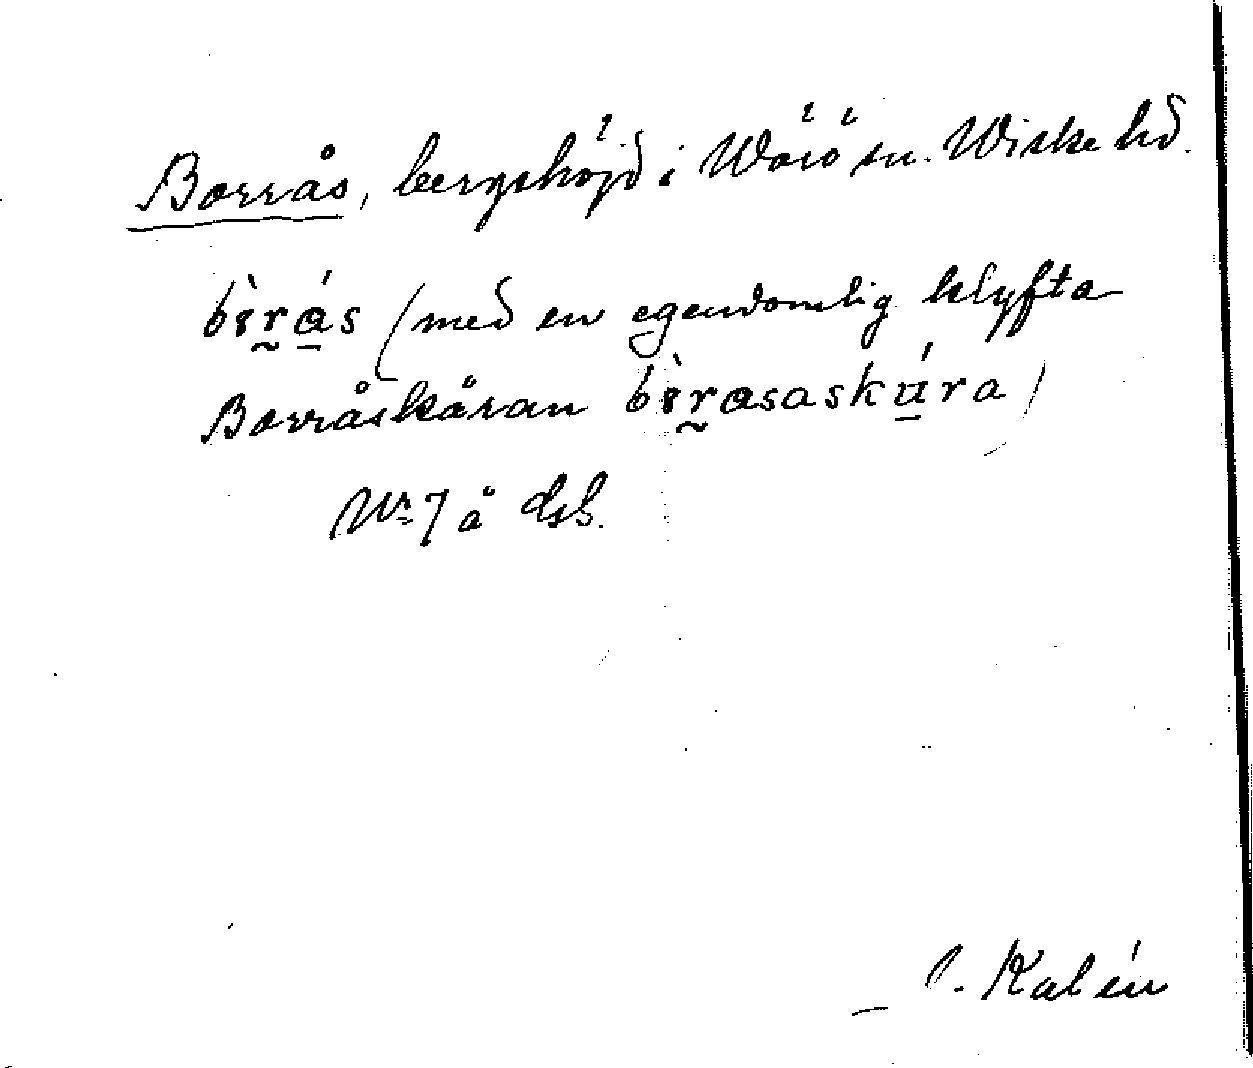 Borrås, bergshöjd i Wärö sn. Wiske hd.
bòrás (med en egendomlig klyfta
Borråskåran bòrasaskúra)
Nr 7 å dsb.
J. Kalén